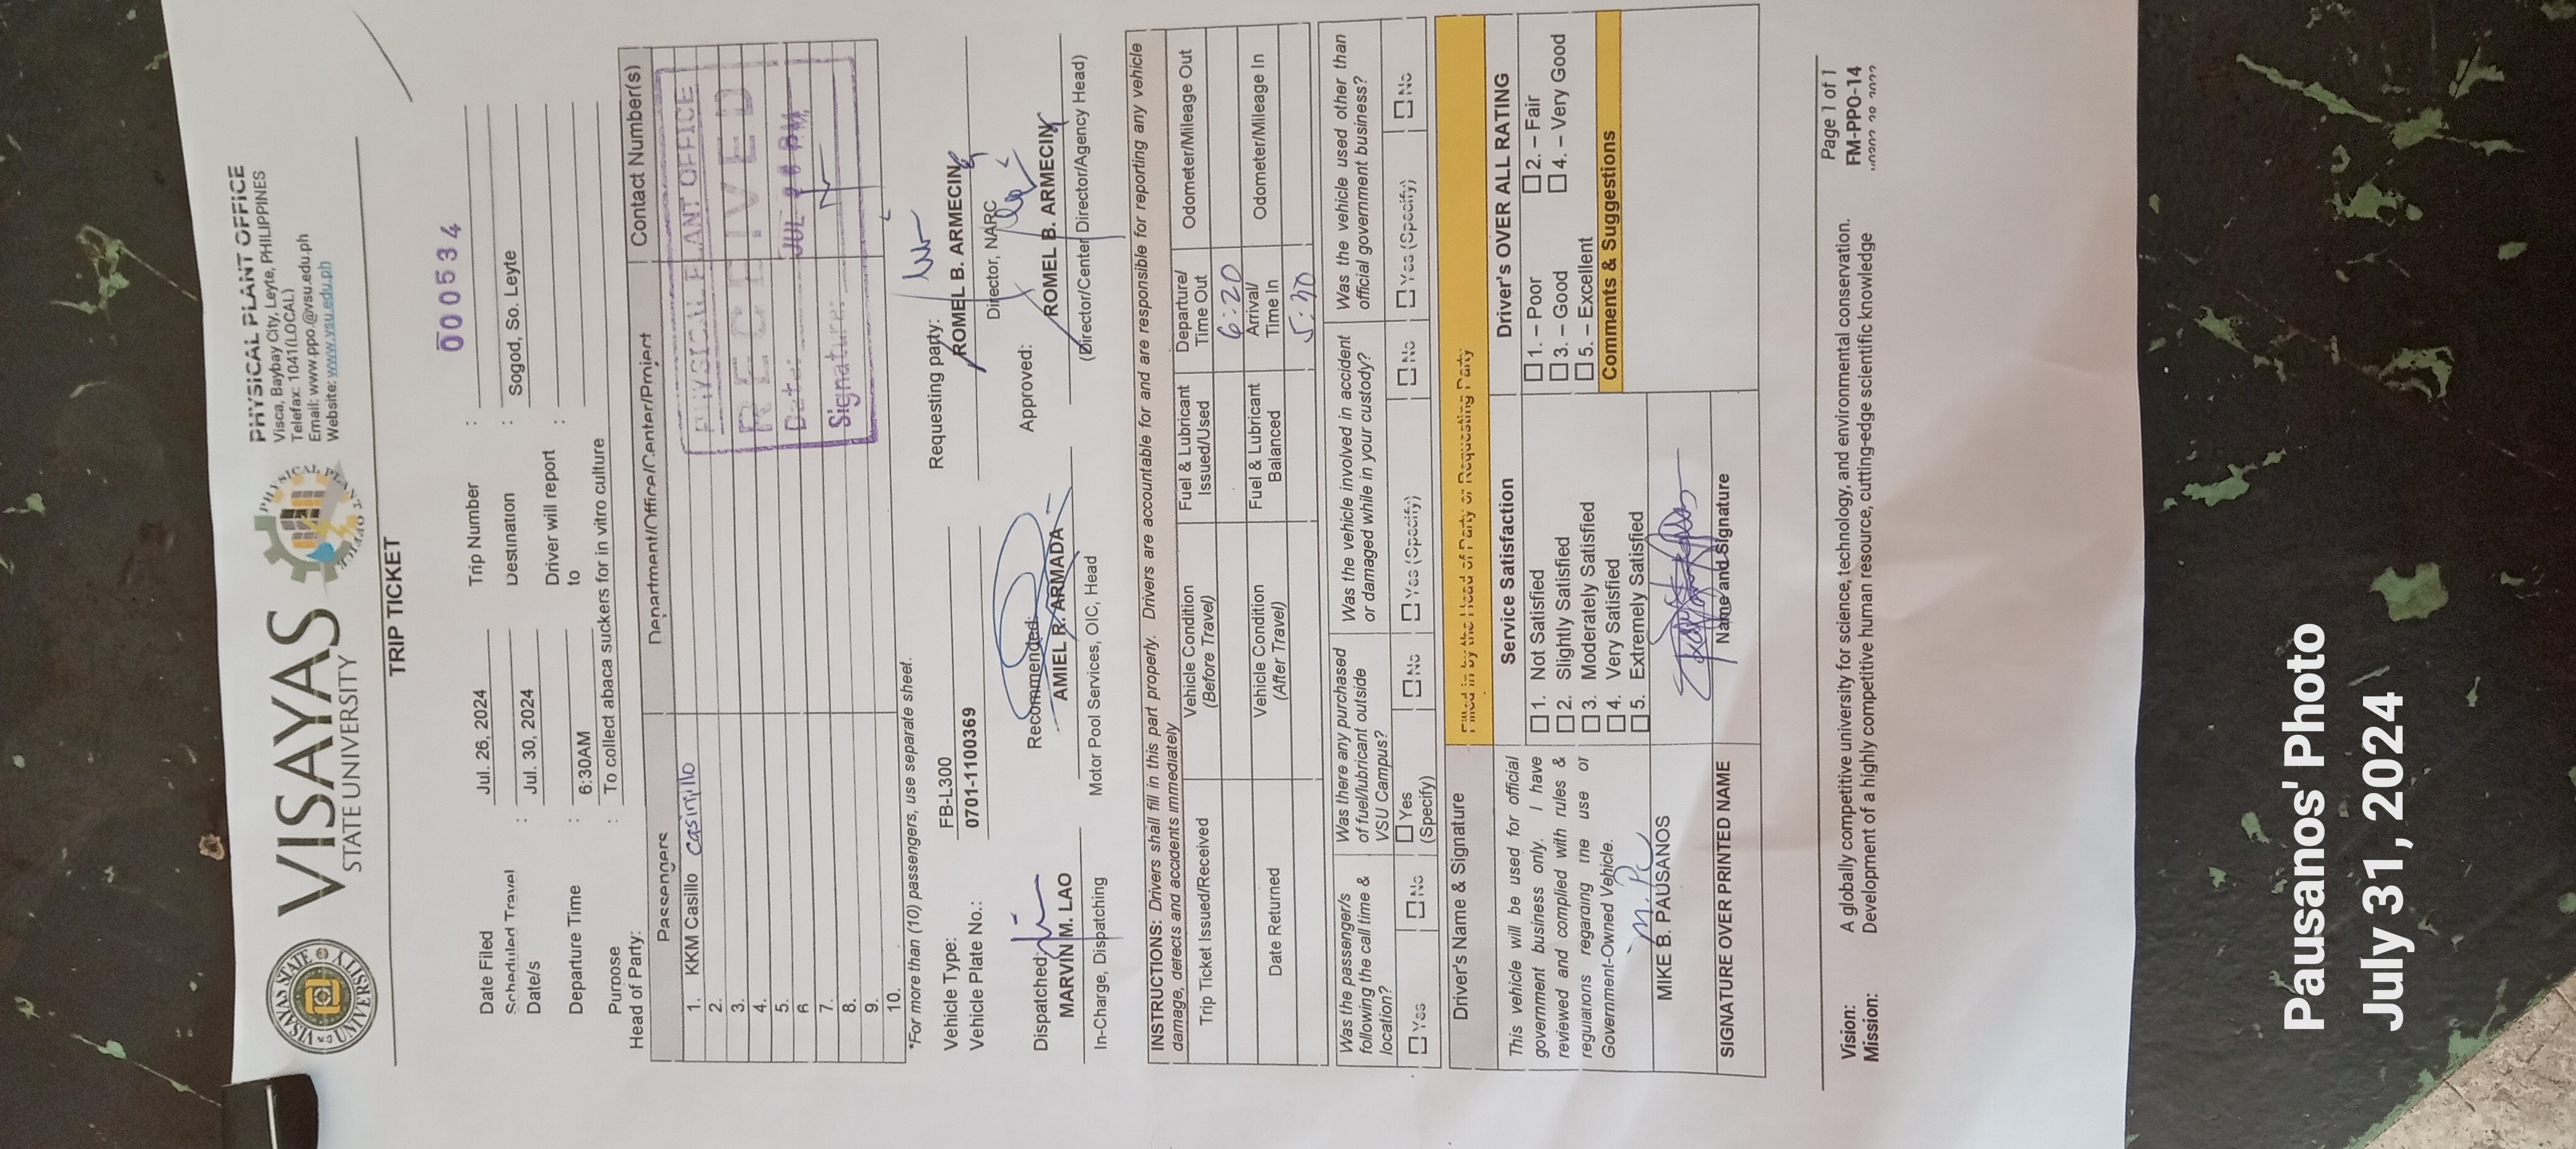 VISAYAS
STATE UNIVERSITY
VISAYAS STATE UNIVERSITY
PHYSICAL PLANT OFFICE
PHYSICAL PLANT OFFICE
Visca, Baybay City, Leyte, PHILIPPINES
Telefax: 1041(LOCAL)
Email: www.ppo.@vsu.edu.ph
Website: www.vsu.edu.ph
TRIP TICKET
000534
Date Filed : Jul. 26, 2024 Trip Number :
Scheduled Travel Date/s : Jul. 30, 2024 Destination : Sogod, So. Leyte
Departure Time : 6:30AM Driver will report to :
Purpose : To collect abaca suckers for in vitro culture
Head of Party:
Passengers Department/Office/Center/Project Contact Number(s)
1. KKM Casillo Casinillo
2.
3.
4.
5.
6
7.
8.
9.
10.
PHYSICAL PLANT OFFICE
RECEIVED
Date:
Signature:
*For more than (10) passengers, use separate sheet.
Vehicle Type: FB-L300
Vehicle Plate No.: 0701-1100369
Requesting party:
ROMEL B. ARMECIN
Director, NARC
Dispatched:
MARVIN M. LAO
In-Charge, Dispatching
Recommended:
AMIEL R. ARMADA
Motor Pool Services, OIC, Head
Approved:
ROMEL B. ARMECIN
(Director/Center Director/Agency Head)
INSTRUCTIONS: Drivers shall fill in this part properly. Drivers are accountable for and are responsible for reporting any vehicle
damage, detects and accidents immediately
Trip Ticket Issued/Received
Vehicle Condition
(Before Travel)
Fuel & Lubricant
Issued/Used
Departure/
Time Out
Odometer/Mileage Out
6:20
Date Returned
Vehicle Condition
(After Travel)
Fuel & Lubricant
Balanced
Arrival/
Time In
Odometer/Mileage In
5:30
Was the passenger/s
following the call time &
location?
Yes No
Was there any purchased
of fuel/lubricant outside
VSU Campus?
Yes
(Specify)
No
Was the vehicle involved in accident
or damaged while in your custody?
Yes (Specify) No
Was the vehicle used other than
official government business?
Yes (Specify) No
Driver's Name & Signature
Filled in by the Head of Party or Requesting Party
This vehicle will be used for official
government business only. I have
reviewed and complied with rules &
regulations regarding the use of
Government-Owned Vehicle.
MIKE B. PAUSANOS
SIGNATURE OVER PRINTED NAME
Service Satisfaction
1. Not Satisfied
2. Slightly Satisfied
3. Moderately Satisfied
4. Very Satisfied
5. Extremely Satisfied
Name and Signature
Driver's OVER ALL RATING
1. – Poor 2. – Fair
3. – Good 4. – Very Good
5. – Excellent
Comments & Suggestions
Vision: A globally competitive university for science, technology, and environmental conservation.
Mission: Development of a highly competitive human resource, cutting-edge scientific knowledge
Page 1 of 1
FM-PPO-14
Pausanos' Photo
July 31, 2024